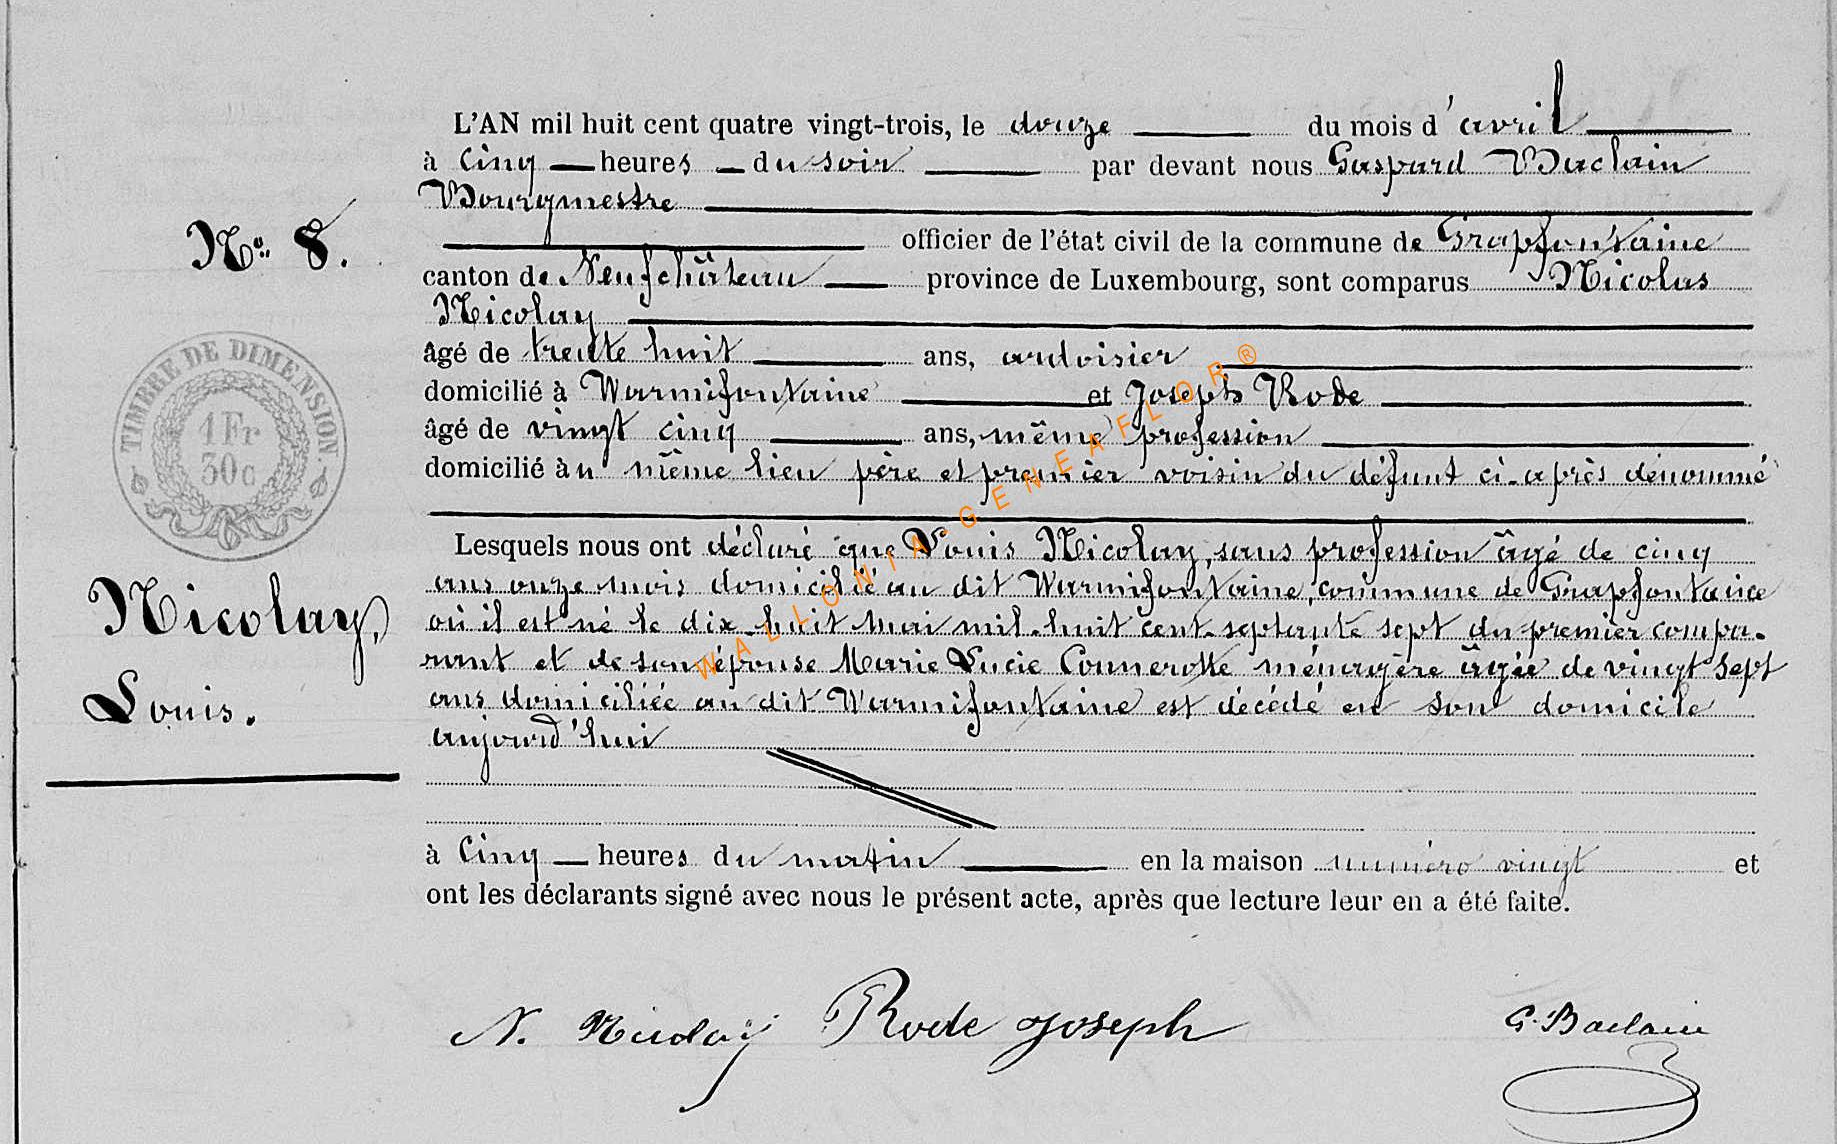 L'AN mil huit cent quatre vingt-trois, le douze du mois d'avril
à cinq heures du soir par devant nous Gaspard Baclain
Bourgmestre
officier de l'état civil de la commune de Grapfontaine
canton de Neufchâteau province de Luxembourg, sont comparus Nicolas
Nicolay
âgé de trente huit ans, ardoisier
domicilié à Warmifontaine et Joseph Rode
âgé de vingt cinq ans, même profession
domicilié au même lieu père et premier voisin du défunt ci-après dénommé
Lesquels nous ont déclaré que Louis Nicolay, sans profession âgé de cinq
ans onze mois domicilié au dit Warmifontaine, commune de Grapfontaine
où il est né le dix-huit mai mil-huit cent-septante sept du premier compa-
rant et de son épouse Marie Lucie Connerotte ménagère âgée de vingt sept
ans domiciliée au dit Warmifontaine est décédé en son domicile
aujourd'hui
à cinq heures du matin en la maison numéro vingt et
ont les déclarants signé avec nous le présent acte, après que lecture leur en a été faite.
N. Nicolay Rode Joseph G. Baclain
No 8.
TIMBRE DE DIMENSION
1 Fr
30c
Nicolay,
Louis.
WALLONIA GENEAFLOR®